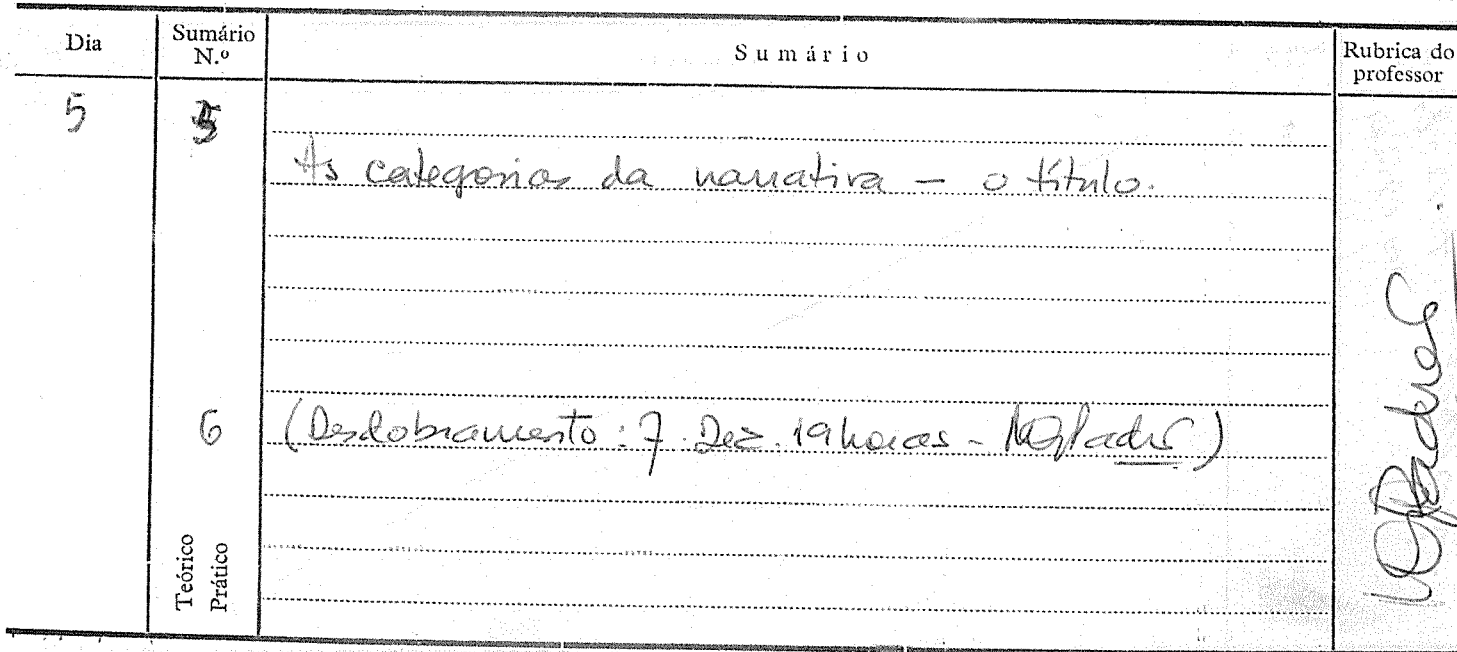 Dia
Sumário N.º
Sumário
Rubrica do professor
5
5
As categorias da narrativa – o título.
6
(Desdobramento: 7. Dez. 19 horas -
Teórico
Prático